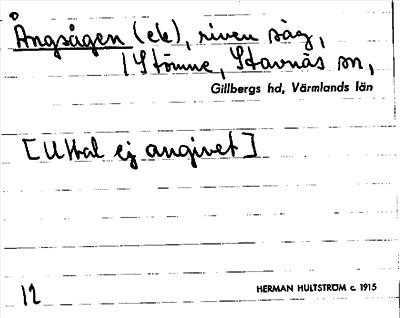 Ångsågen (ek), riven såg,
/ Stömne, Stavnäs sn,
Gillbergs hd, Värmlands län
[Uttal ej angivet]
12
HERMAN HULTSTRÖM c. 1915